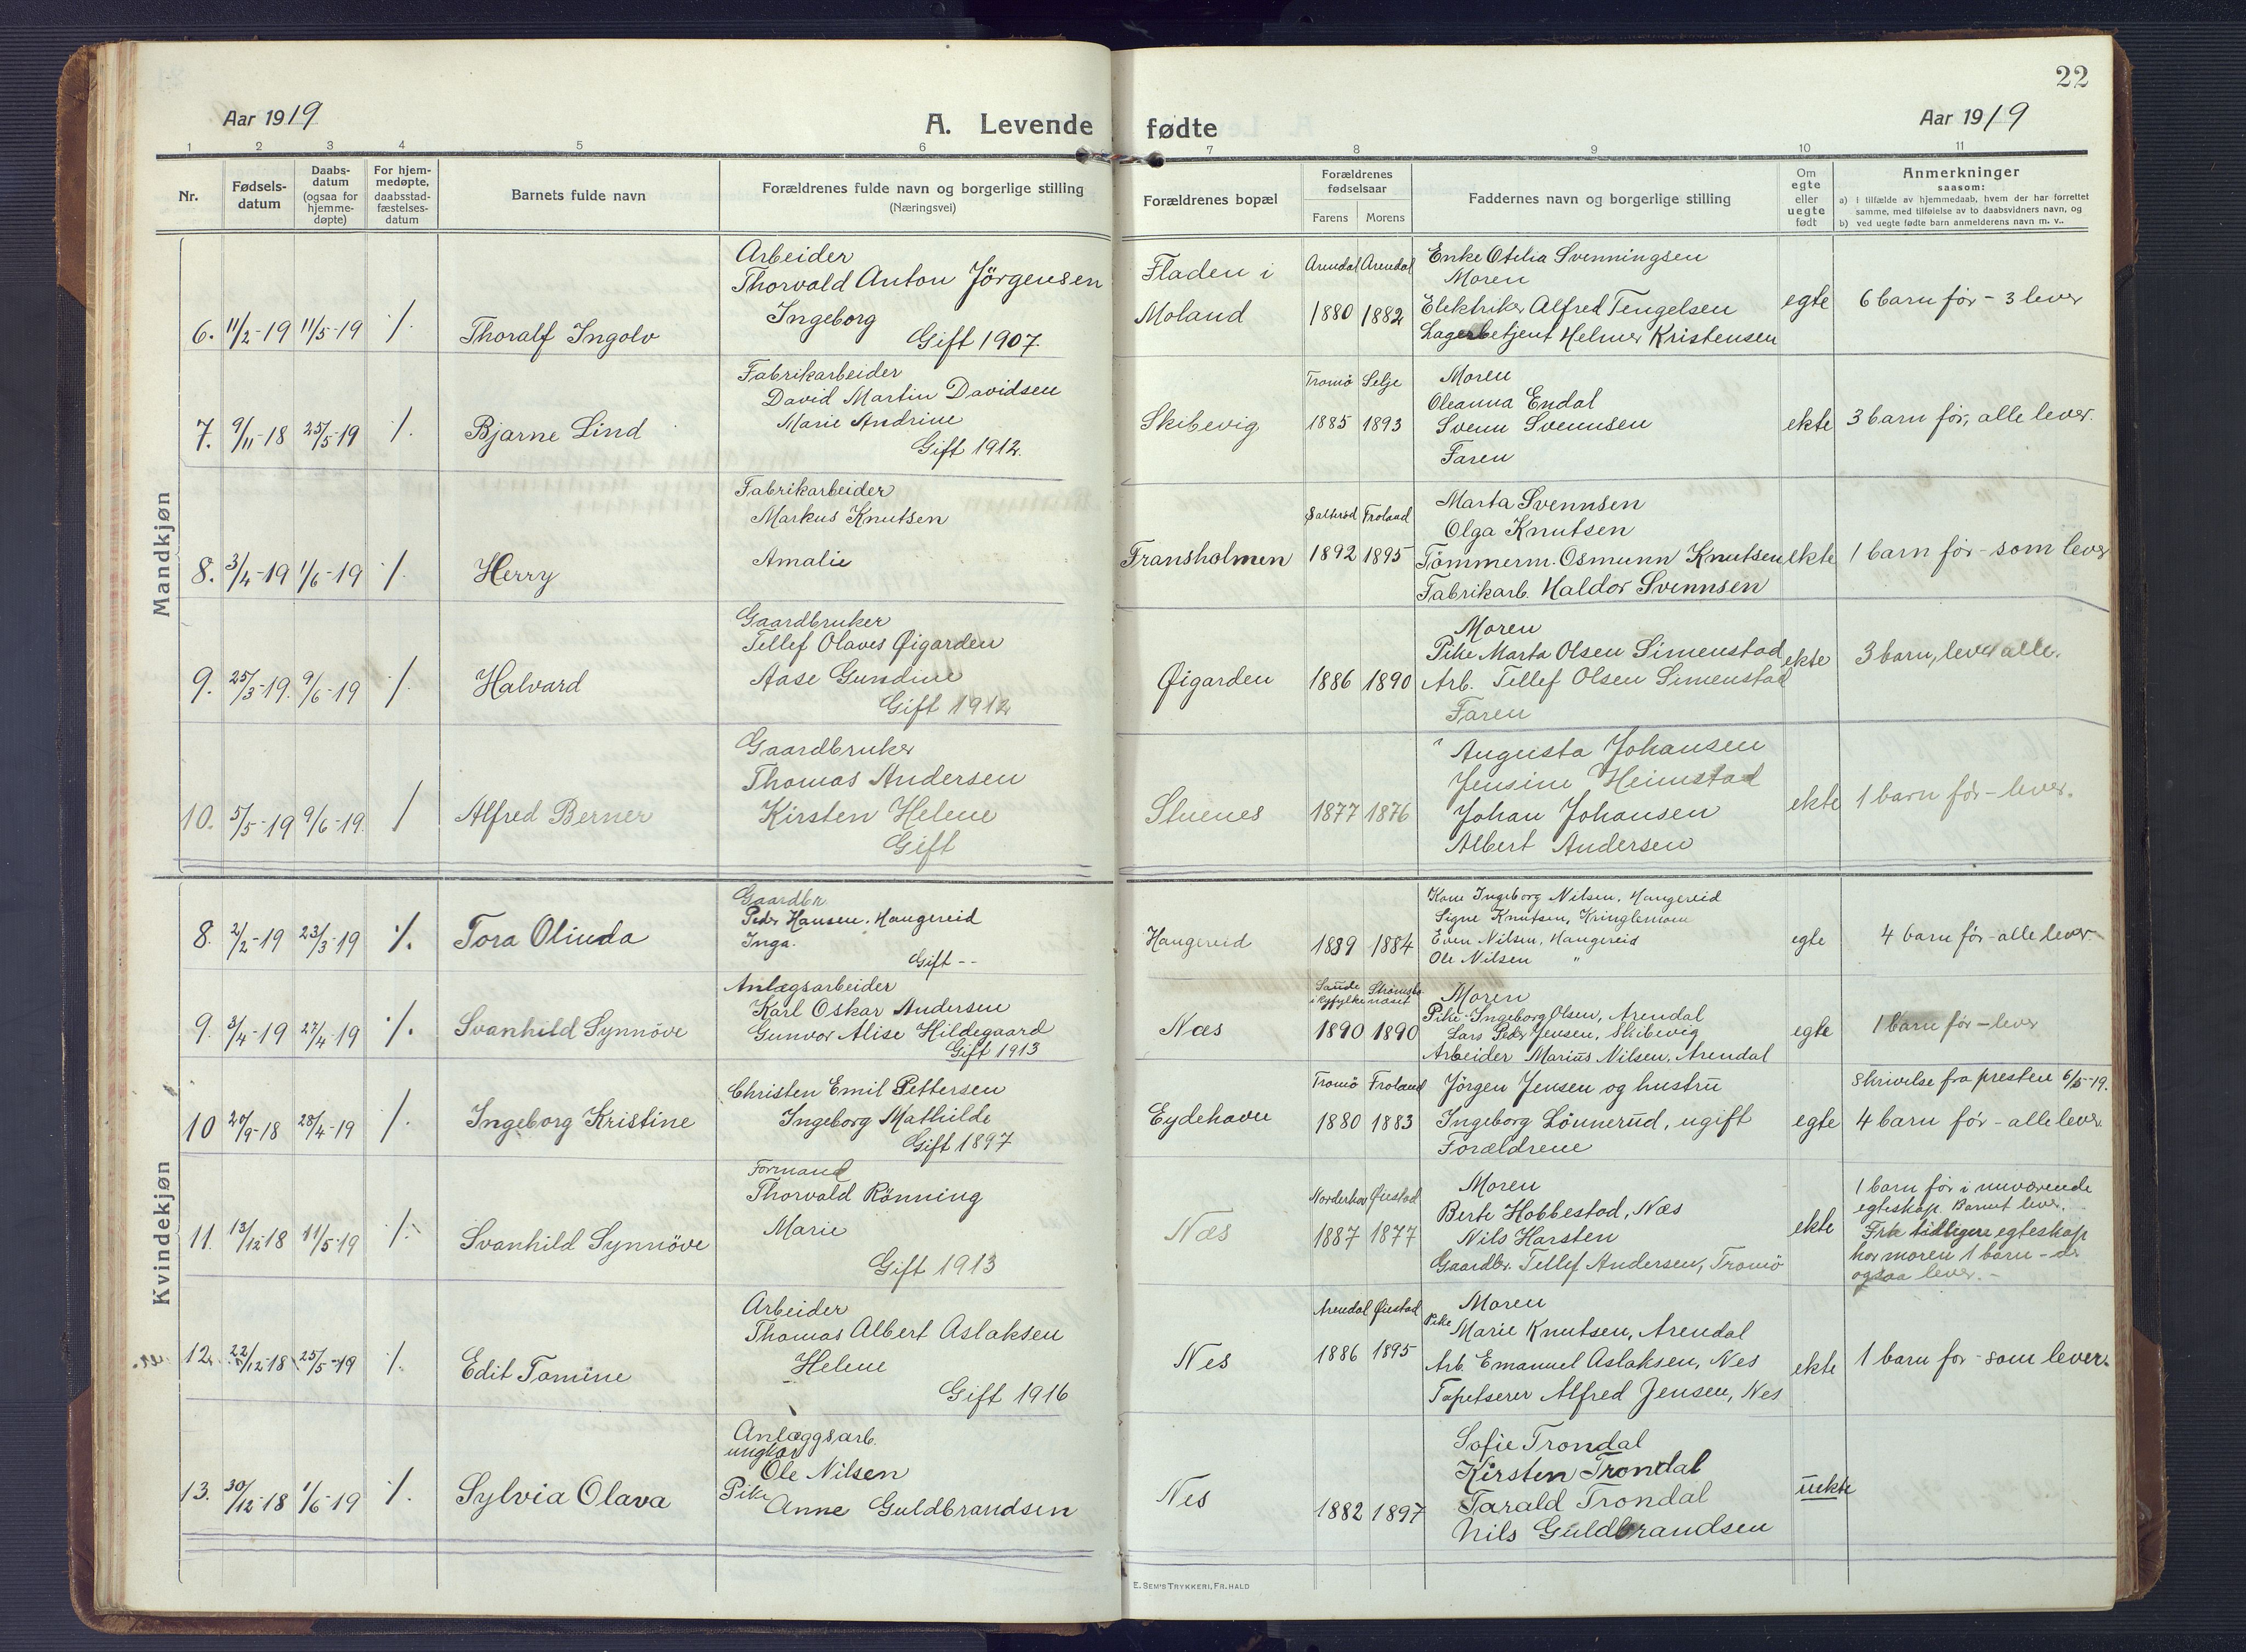 22
Aar 1919
A. Levende fødte
Aar 1919
1 2 3 4 5 6 7 8 9 10 11
Nr.
Fødsels-
datum
Daabs-
datum
(ogsaa for
hjemme-
døpte)
For hjem-
medøpte,
daabsstad-
fæstelses-
datum
Barnets fulde navn
Forældrenes fulde navn og borgerlige stilling
(Næringsvei)
Forældrenes bopæl
Forældrenes
fødselsaar
Farens Morens
Faddernes navn og borgerlige stilling
Om
egte
eller
uegte
født
Anmerkninger
saasom:
a) i tilfælde av hjemmedaab, hvem der har forrettet
samme, med tilføielse av to daabsvidners navn, og
b) ved uegte fødte barn anmelderens navn m. v..
Mandkjøn
6. 11/2-19 11/5-19 ./.
Thoralf Ingolv
Arbeider
Thorvald Anton Jörgensen
Ingeborg
Gift 1907.
Fladen i
Moland
Arendal Arendal
1880 1882
Enke Otilia Svenningsen
Moren
Elektriker Alfred Tengelsen
Lagerbetjent Helmer Kristensen
egte
6 barn før - 3 lever
7. 9/11-18 25/5-19 ./.
Bjarne Lind
Fabrikarbeider
David Martin Davidsen
Marie Andrine
Gift 1912.
Skibevig
Tromö Selje
1885 1893
Moren
Oleanna Endal
Svenn Svennsen
Faren
ekte
3 barn før, alle lever.
8. 3/4-19 1/6-19 ./.
Herry
Fabrikarbeider
Markus Knutsen
Amalie
Fransholmen
Saltrød Froland
1892 1895
Marta Svennsen
Olga Knutsen
Tömmerm. Osmunn Knutsen
Fabrikarb. Haldor Svennsen
ekte
1 barn før - som lever
9. 25/3-19. 9/6-19 ./.
Halvard
Gaardbruker
Tellef Olaves Øigarden
Aase Gundine
Gift 1912
Øigarden
1886 1890
Moren
Pike Marta Olsen Simenstad
Arb. Tellef Olsen Simenstad
Faren
ekte
3 barn, lever alle.
10. 5/5-19 9/6-19. /
Alfred Berner
Gaardbruker
Thomas Andersen
Kirsten Helene
Gift
Stuenes
1877 1876
Augusta Johansen
Jensine Heimstad
Johan Johansen
Albert Andersen
ekte
1 barn før - lever.
Kvindekjøn
8. 2/2-19 23/3-19 ./.
Tora Olinda
Gaardbr.
Peder Hansen, Haugereid
Inga.
Gift --
Haugereid
1889 1884
Kone Ingeborg Nilsen, Haugereid
Signe Knutsen, Kringlemoen
Even Nilsen, Haugereid
Ole Nilsen "
egte
4 barn før - alle lever.
9. 3/4-19 27/4-19 ./.
Svanhild Synnöve
Anlægsarbeider
Karl Oskar Andersen
Gunvor Alise Hildegaard
Gift 1913
Næs
Saude
i Ryfylke
Strömsbo
næset
1890 1890
Moren
Pike Ingeborg Olsen, Arendal
Lars Peder Jensen, Skibevig
Arbeider Marius Nilsen, Arendal
egte
1 barn før - lever
10 20/9-18 28/4-19 ./.
Ingeborg Kristine
Christen Emil Pettersen
Ingeborg Mathilde
Gift 1897
Eydehavn
Tromö Froland
1880 1883
Jörgen Jensen og hustru
Ingeborg Lönnerud, ugift
Forældrene
egte
Skrivelse fra presten 6/5-19.
4 barn før - alle lever.
11. 13/12-18 11/5-19 ./.
Svanhild Synnöve
Formand
Thorvald Rönning
Marie
Gift 1913
Næs
Norderhov Øiestad
1887 1877
Moren
Berte Hobbestad, Næs
Nils Harsten
Gaardbr. Tellef Andersen, Tromö
ekte
1 barn før i nuværende
egteskap. Barnet lever.
tidligere egteskap
har moren 1 barn - der
ogsaa lever. -
12. 22/12-18 25/5-19 ./.
Edit Tomine
Arbeider
Thomas Albert Aslaksen
Helene
Gift 1916
Nes
Arendal Øiestad
1886 1895
Moren
Pike Marie Knutsen, Arendal
Arb. Emanuel Aslaksen, Nes
Tapetserer Alfred Jensen, Nes
ekte
1 barn før - som lever.
13. 30/12-18 1/6-19 ./.
Sylvia Olava
Anlæggsarb.
ungkar
Ole Nilsen
Pike
Anne Guldbrandsen
Nes
1882 1897
Sofie Trondal
Kirsten Trondal
Tarald Trondal
Nils Guldbrandsen
uekte
E. SEM'S TRYKKERI, FR.HALD